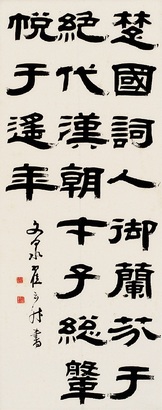 楚國詞人御蘭芬于
絕代漢朝才子總鞶
帨于遙年
文泉翟云升書